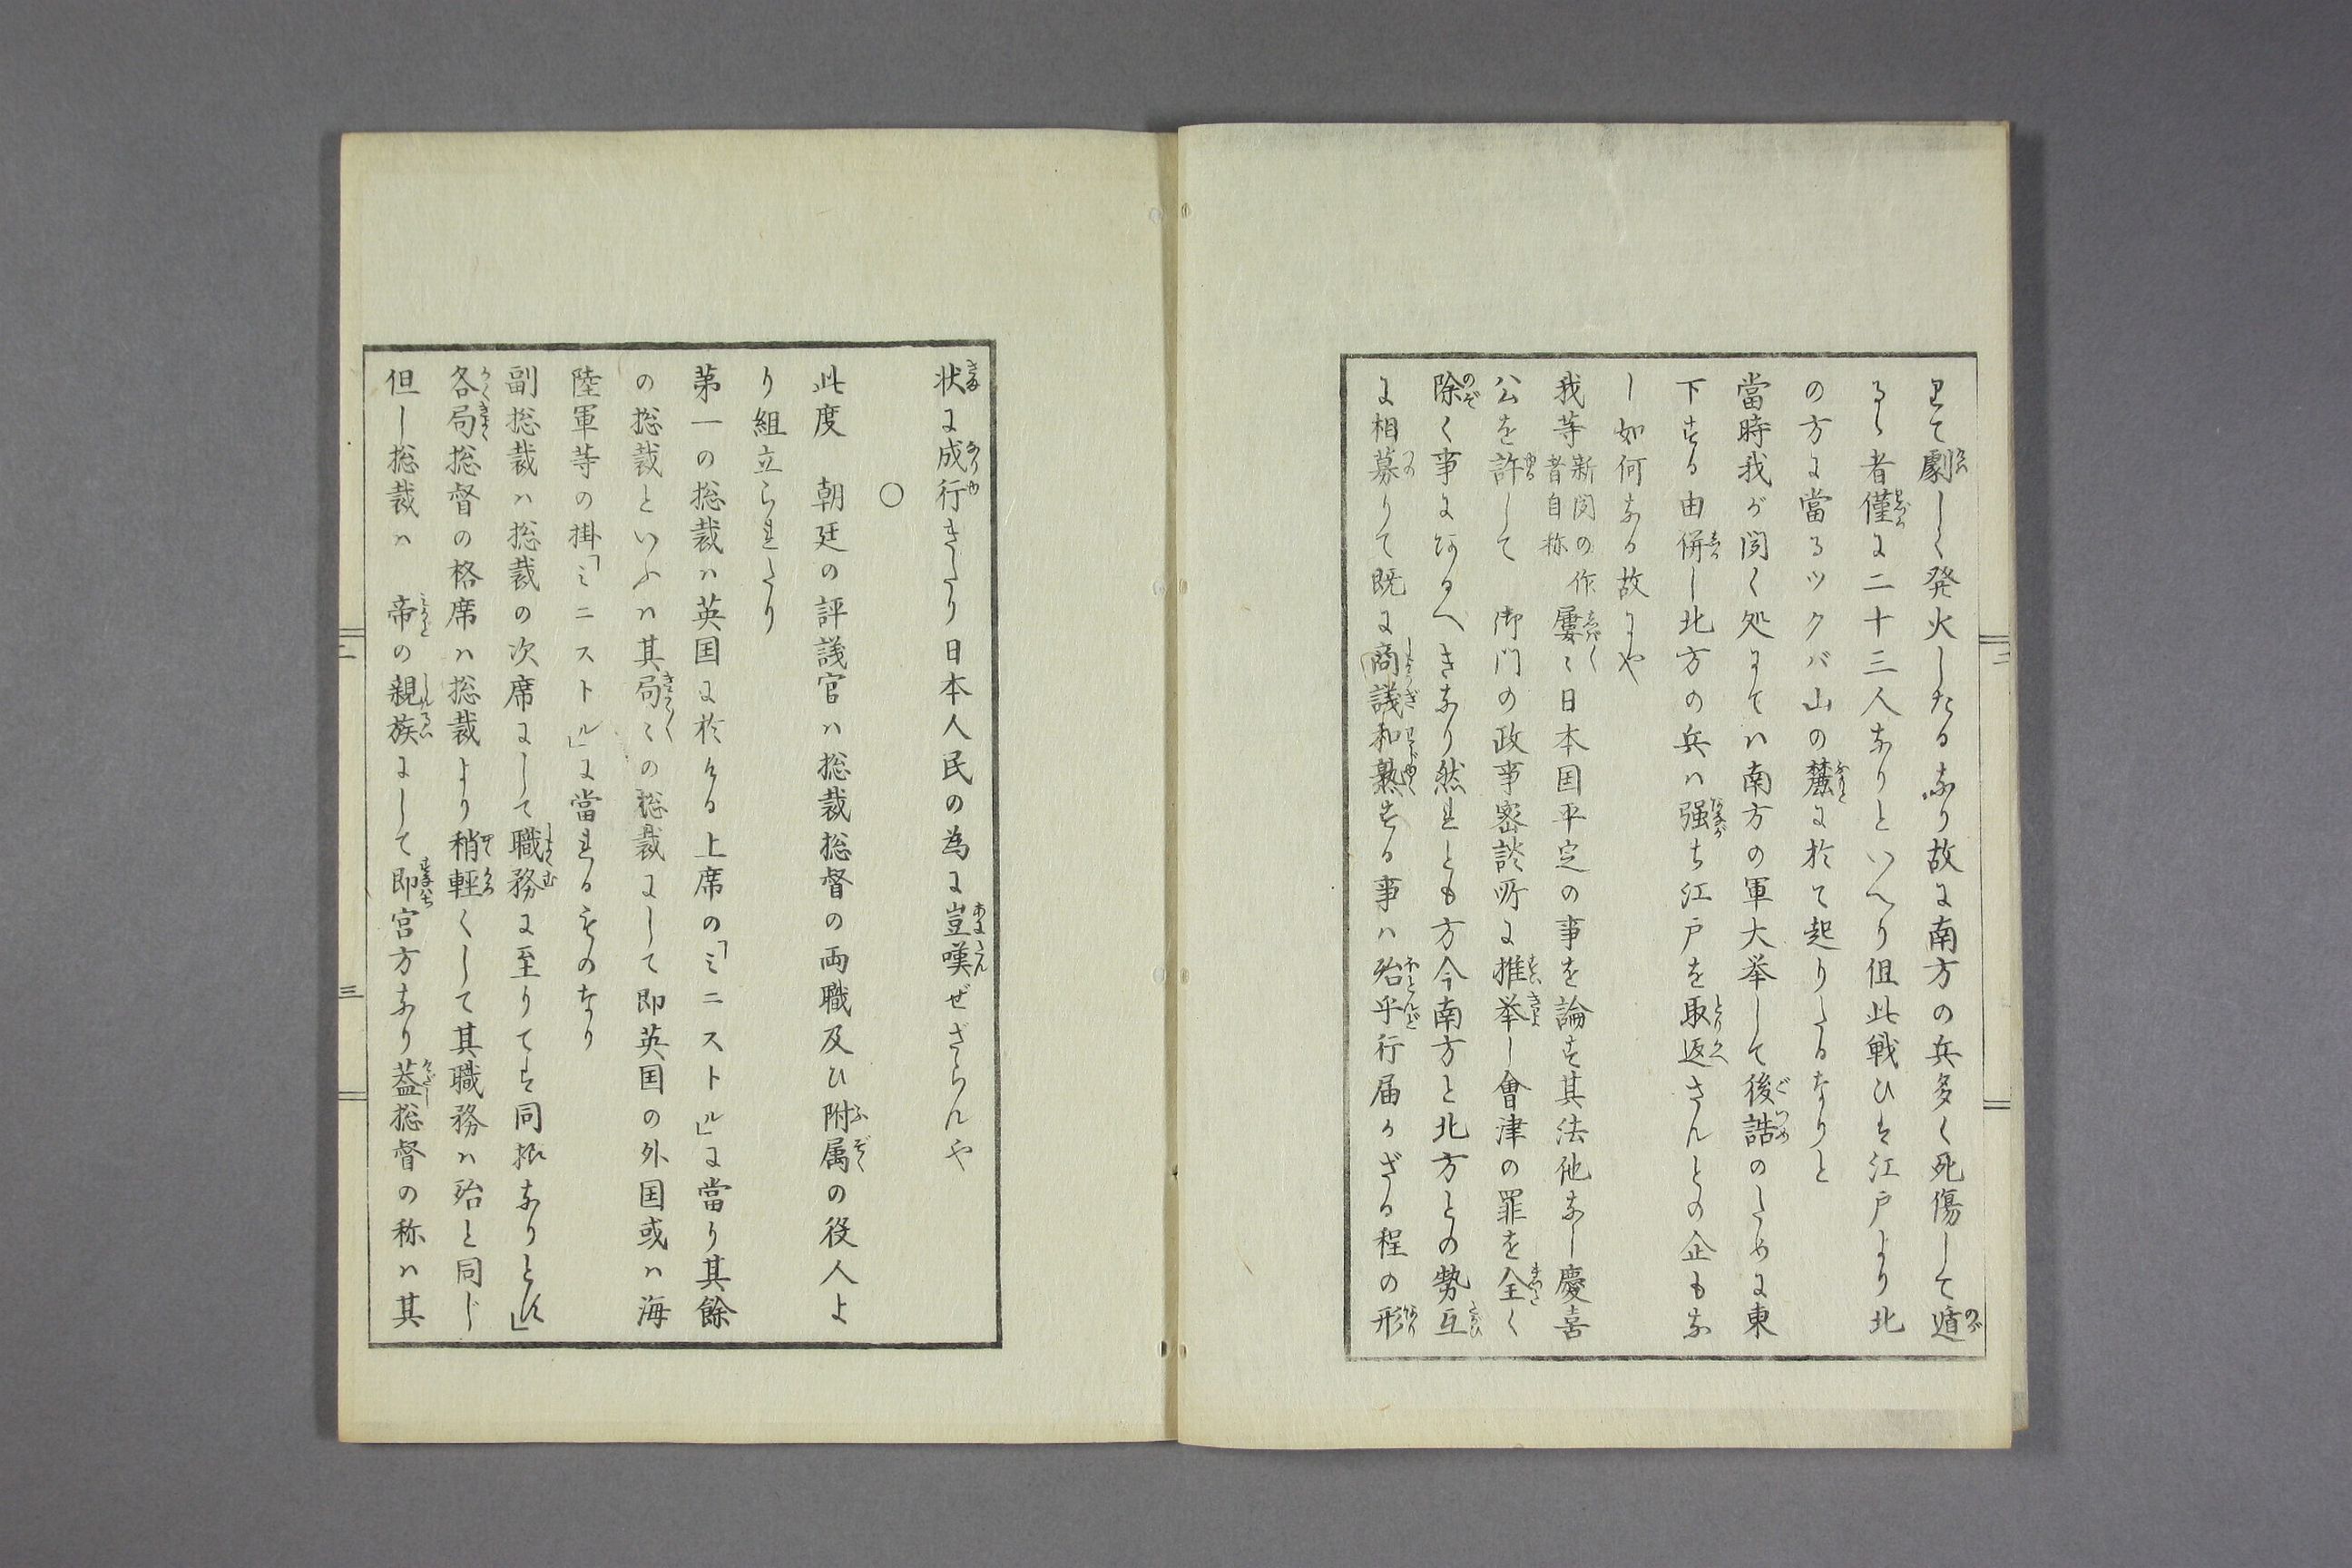 りて劇しく発火したるなり故に南方の兵多く死傷して遁
るゝ者僅に二十三人なりといへり但此戦ひは江戸より北
の方に當るツクバ山の麓に於て起りたるなりと
當時我が聞く処にてハ南方の軍大挙して後詰のために東
下する由併し北方の兵ハ强ち江戸を取返さんとの企もな
し如何なる故にや
我等新聞の作者自称屡〻日本国平定の事を論ず其法他なし慶喜
公を許して　御門の政事密談所に推挙し會津の罪を全く
除く事にあるへきなり然れとも方今南方と北方との勢互
に相募りて既に商議和熟する事ハ殆乎行届かざる程の形
状に成行きたり日本人民の為に豈嘆ぜざらんや
○
此度　朝廷の評議官ハ総裁総督の両職及ひ附属の役人よ
り組立られたり
第一の総裁ハ英国に於ける上席の「ミニストル」に當り其餘
の総裁といふハ其局〻の総裁にして即英国の外国或ハ海
陸軍等の掛「ミニストル」に當れるものなり
副総裁ハ総裁の次席にして職務に至りてハ同様なりとす」
各局総督の格席ハ総裁より稍輕くして其職務ハ殆と同じ
但し総裁ハ　帝の親族にして即宮方なり蓋総督の称ハ其
二
三